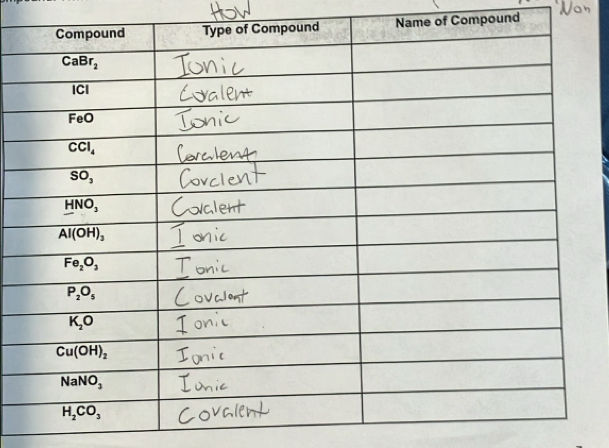 HOW
Non
Compound Type of Compound Name of Compound
CaBr₂ Ionic
ICl Covalent
FeO Ionic
CCl₄ Covalent
SO₃ Covalent
HNO₃ Covalent
Al(OH)₃ Ionic
Fe₂O₃ Ionic
P₂O₅ Covalent
K₂O Ionic
Cu(OH)₂ Ionic
NaNO₃ Ionic
H₂CO₃ Covalent